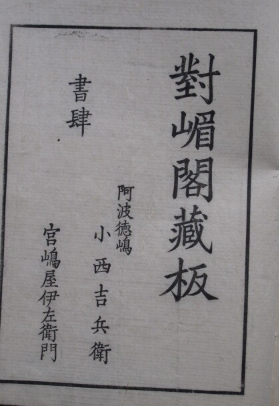 對嵋閣藏板
阿波德嶋
小西吉兵衛
書肆
宮嶋屋伊左衛門